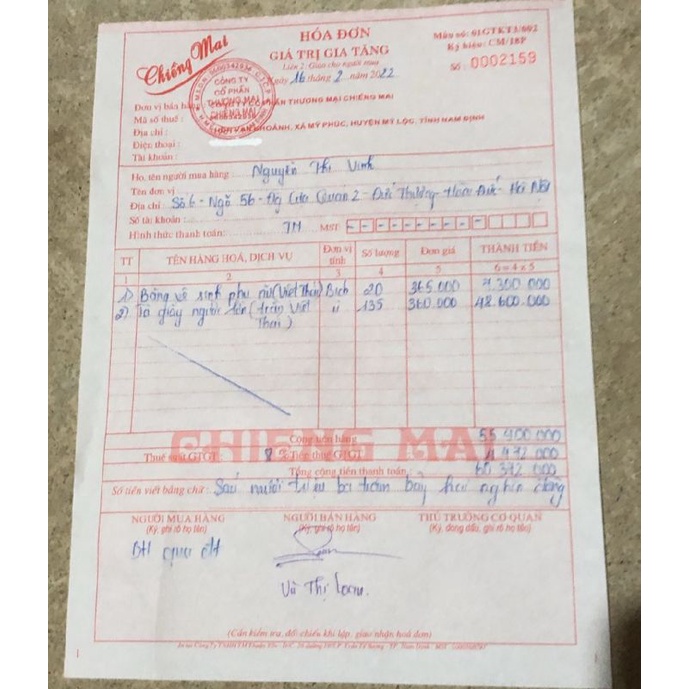 Chiềng Mai
HÓA ĐƠN
GIÁ TRỊ GIA TĂNG
Liên 2: Giao cho người mua
Ngày 16 tháng 2 năm 2022
Mẫu số: 01GTKT3/002
Ký hiệu: CM/18P
Số : 0002159
CÔNG TY
CỔ PHẦN
THƯƠNG MẠI
CHIỀNG MAI
Đơn vị bán hàng PHẦN THƯƠNG MẠI CHIỀNG MAI
Mã số thuế :
Địa chỉ : KHOÁNH, XÃ MỸ PHÚC, HUYỆN MỸ LỘC, TỈNH NAM ĐỊNH
Điện thoại :
Tài khoản :
Họ, tên người mua hàng : Nguyễn Thị Vinh
Tên đơn vị
Địa chỉ : Số 6 - Ngõ 56 - Hà Nội
Số tài khoản :
Hình thức thanh toán: TM MST:
TT TÊN HÀNG HOÁ, DỊCH VỤ Đơn vị tính Số lượng Đơn giá THÀNH TIỀN
1 2 3 4 5 6 = 4 x 5
1) Băng vệ sinh phụ nữ (Việt Thái) Bịch 20 365.000 7.300.000
2) Tã giấy người lớn (trần Việt Thái) 11 135 360.000 48.600.000
CHIENG MAI
Cộng tiền hàng 55 900 000
Thuế suất GTGT : 8 % Tiền thuế GTGT : 4 472 000
Tổng cộng tiền thanh toán : 60 372 000
Số tiền viết bằng chữ : Sáu mươi triệu ba trăm bảy hai nghìn đồng
NGƯỜI MUA HÀNG NGƯỜI BÁN HÀNG THỦ TRƯỞNG CƠ QUAN
(Ký, ghi rõ họ tên) (Ký, ghi rõ họ tên) (Ký, đóng dấu, ghi rõ họ tên)
BH qua ĐT
Vũ Thị Loan.
(Cần kiểm tra, đối chiếu khi lập, giao nhận hoá đơn)